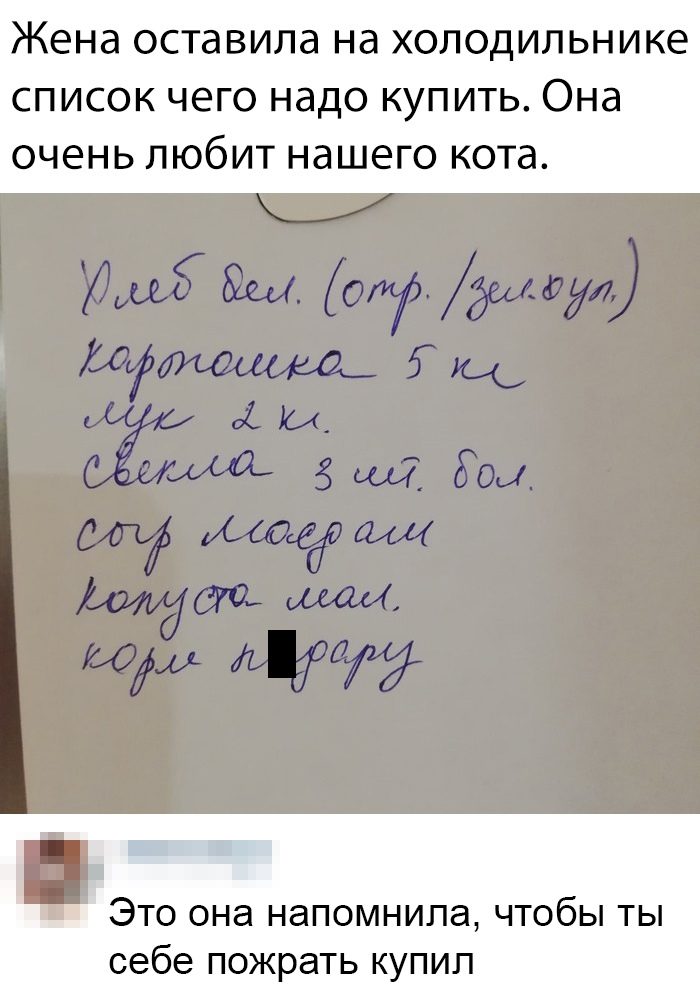 Жена оставила на холодильнике
список чего надо купить. Она
очень любит нашего кота.
Хлеб бел. (отр./зел.буп.)
картошка 5 кг
лук 2 кг.
свекла 3 шт. бол.
сыр Маасдам
капуста мал.
корм п дару
Это она напомнила, чтобы ты
себе пожрать купил